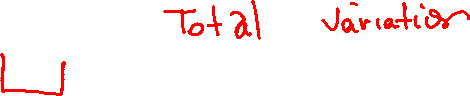 Total variation